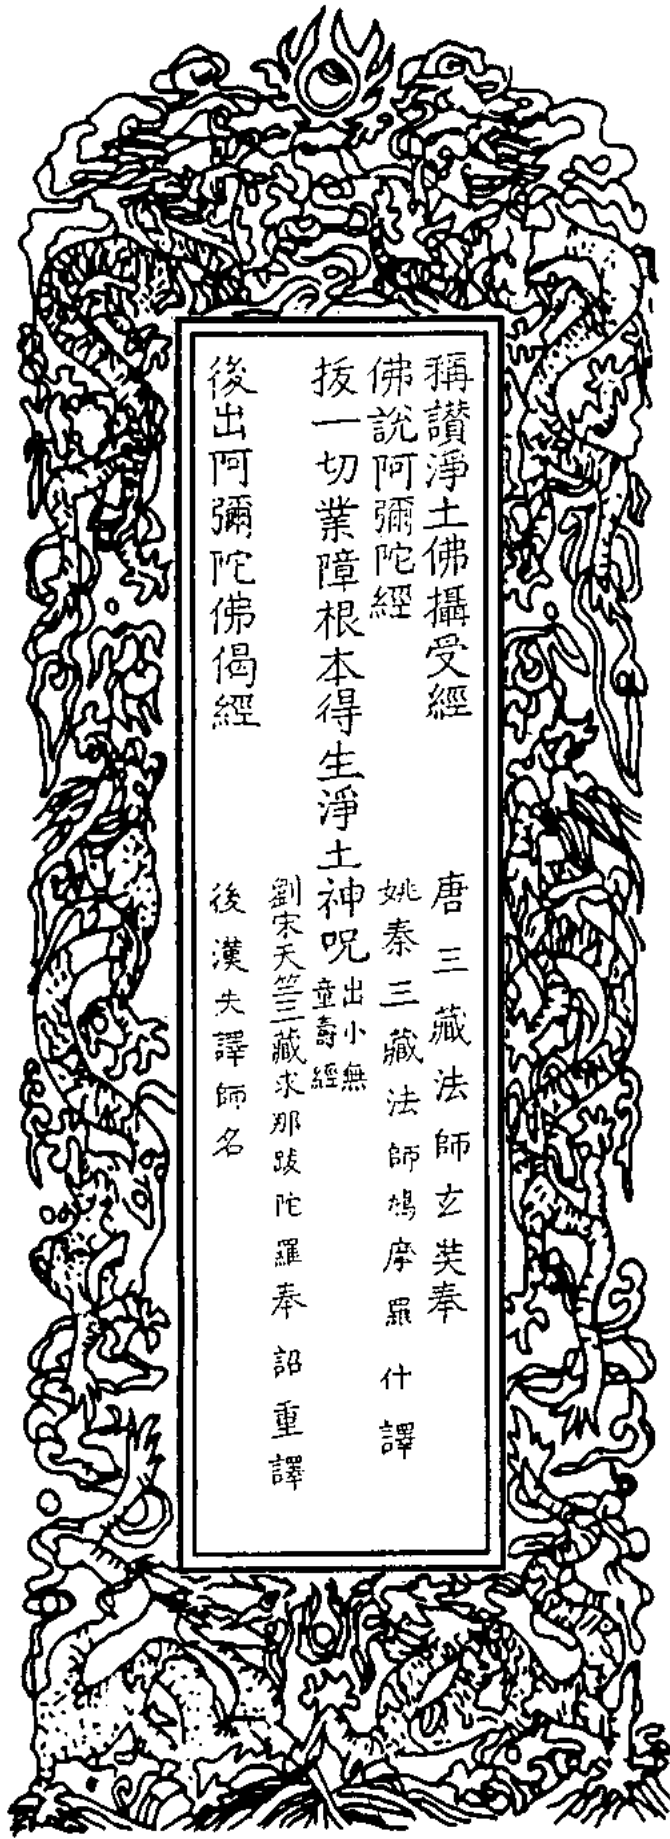 稱讃淨土佛攝受經 唐三藏法師玄奘奉
佛說阿彌陀經 姚秦三藏法師鳩摩羅什譯
拔一切業障根本得生淨土神呪 出小無量壽經
劉宋天竺三藏求那跋陀羅奉詔重譯
後出阿彌陀佛偈經 後漢失譯師名